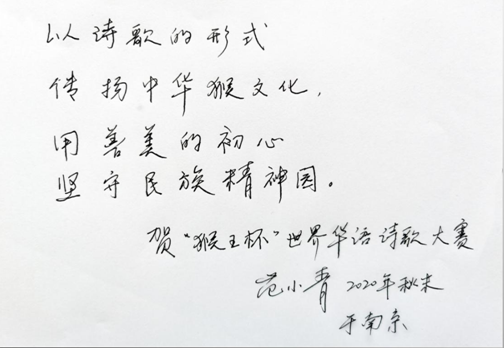 以诗歌的形式
传扬中华猴文化，
用善美的初心
坚守民族精神园。
贺“猴王杯”世界华语诗歌大赛
范小青 2020年秋末
于南京